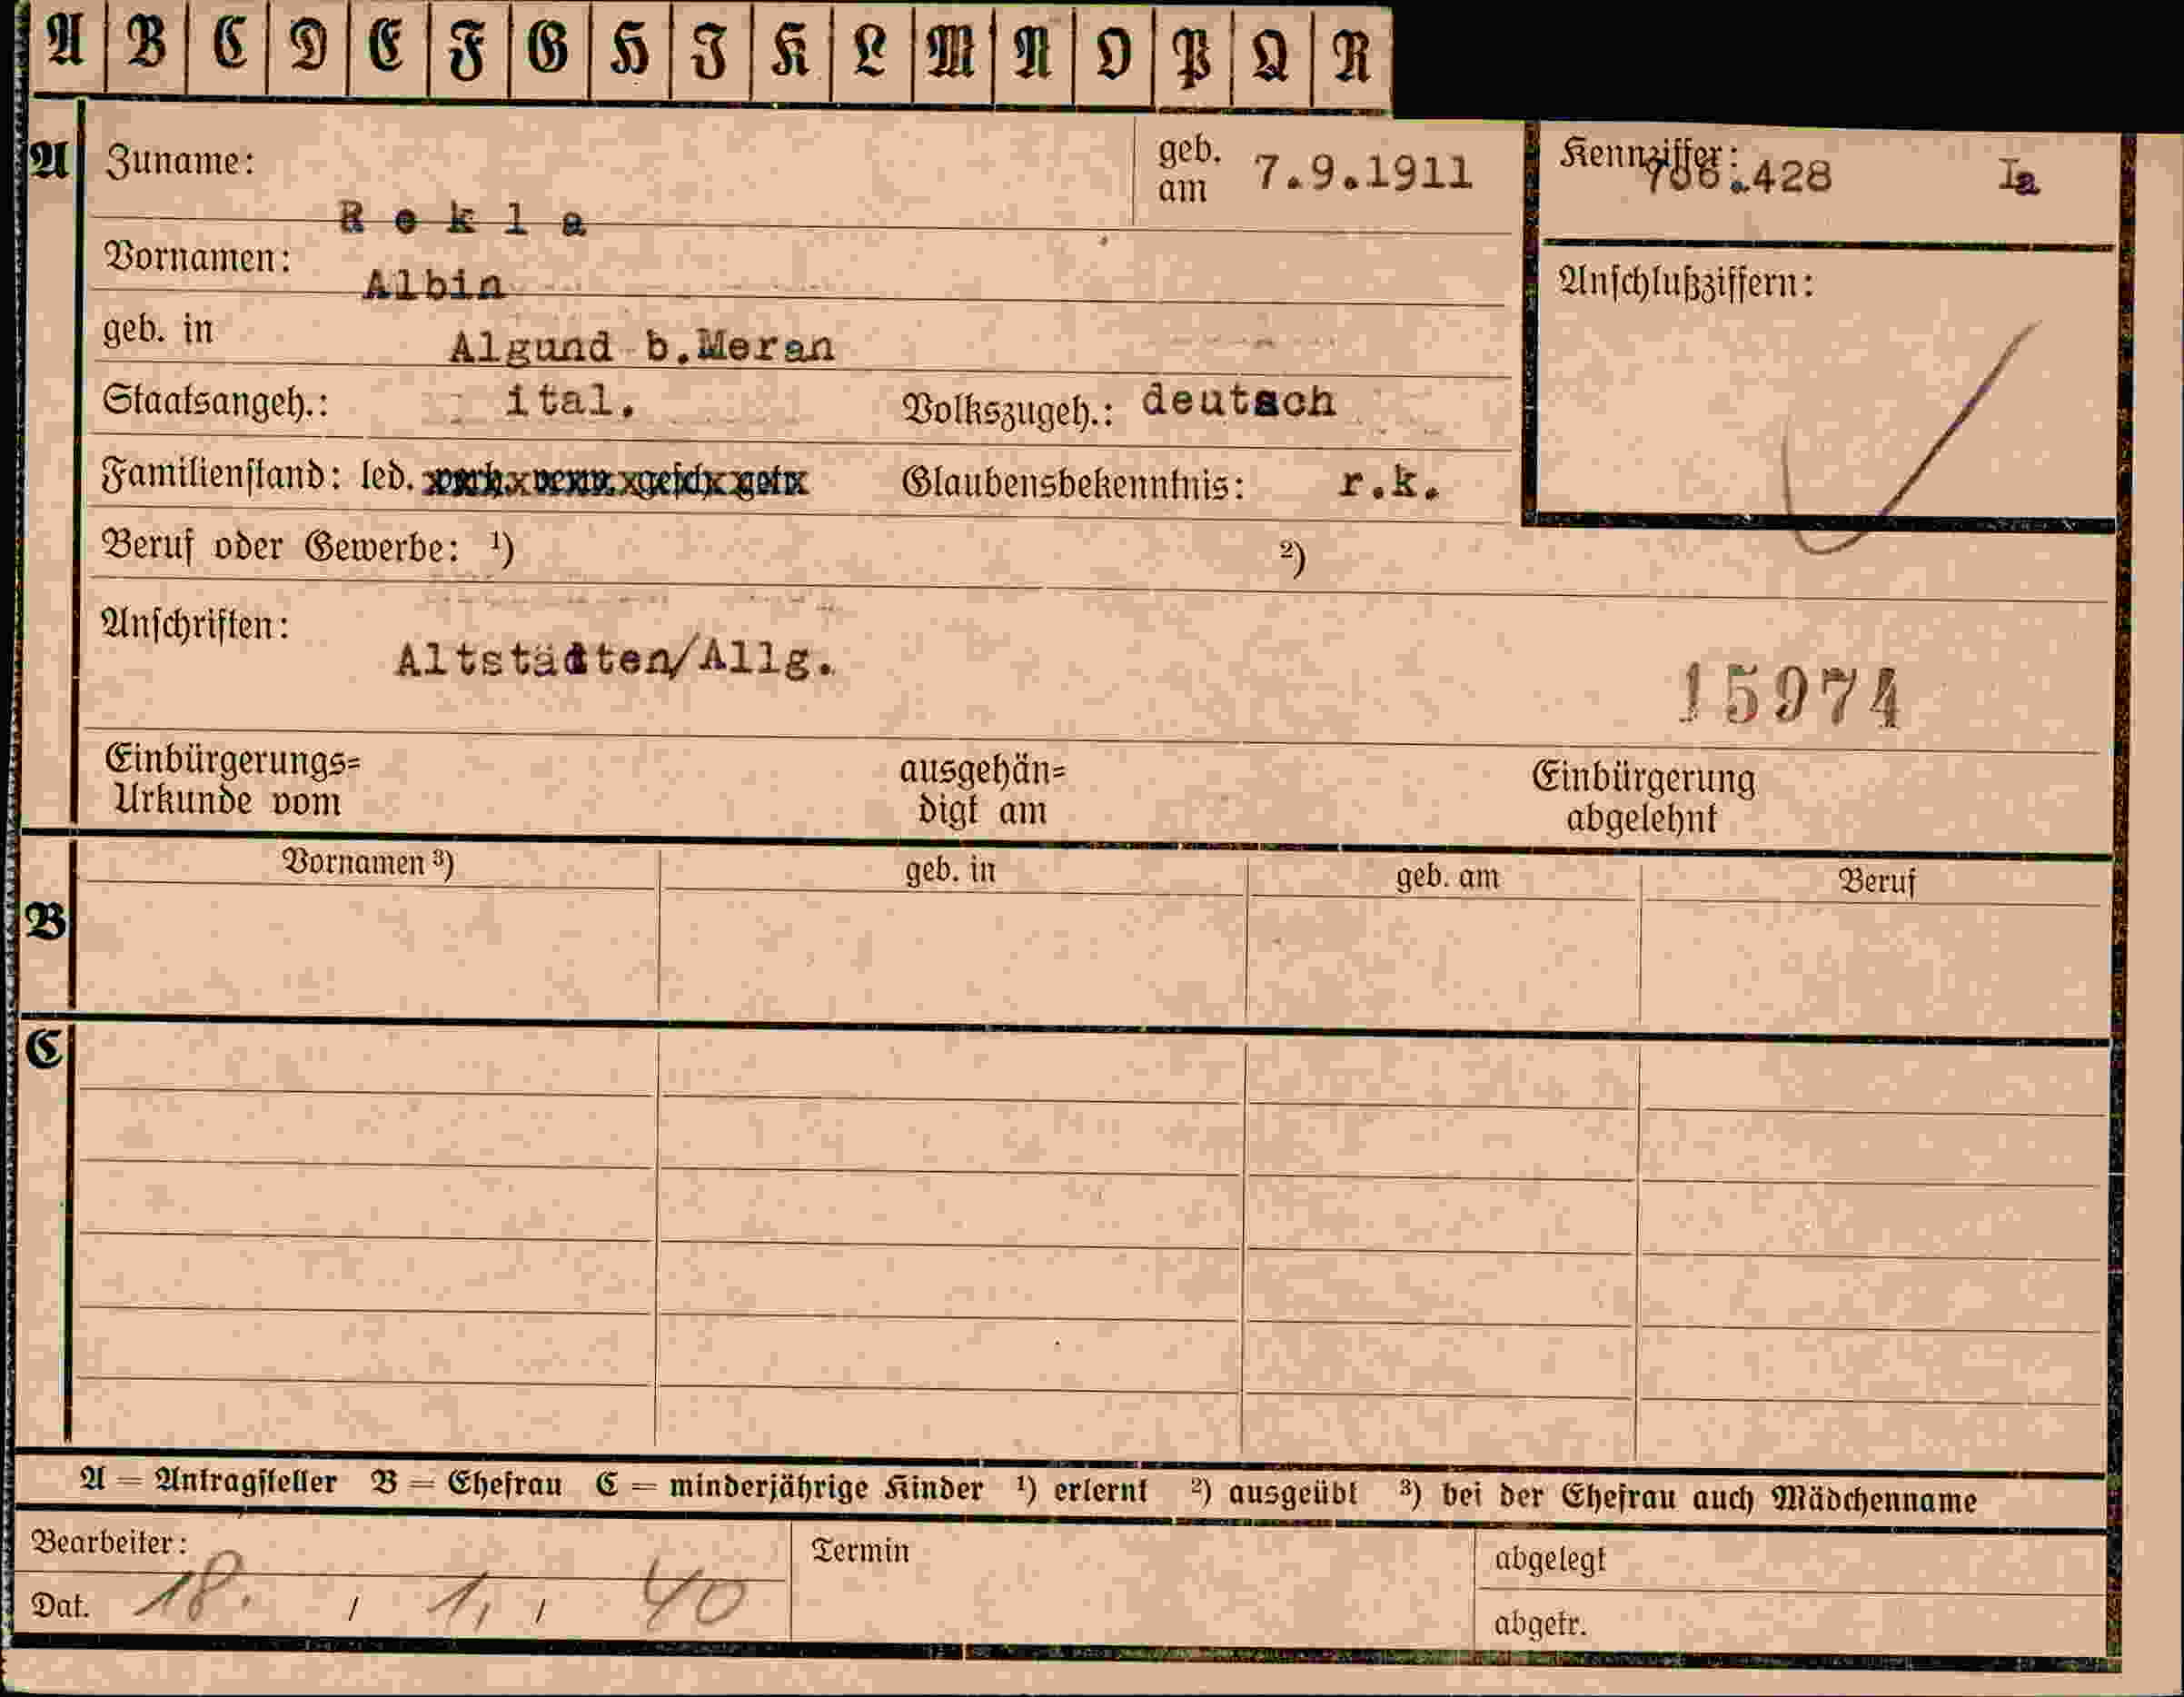 A B C D E F G H J K L M N O P Q R
A Zuname: Rekla geb. am 7.9.1911 Kennziffer: 706.428 Ia
Vornamen: Albin Anschlußziffern:
geb. in Algund b.Meran
Staatsangeh.: ital. Volkszugeh.: deutsch
Familienstand: led. verh. verw. gesch. getr. Glaubensbekenntnis: r.k.
Beruf oder Gewerbe: ¹) ²)
Anschriften: Altstädten/Allg.
15974
Einbürgerungs=
Urkunde vom
ausgehän=
digt am
Einbürgerung
abgelehnt
B Vornamen ³) geb. in geb. am Beruf
C
A = Antragsteller B = Ehefrau C = minderjährige Kinder ¹) erlernt ²) ausgeübt ³) bei der Ehefrau auch Mädchenname
Bearbeiter: Termin abgelegt
Dat. 18. / 1. / 40 abgetr.